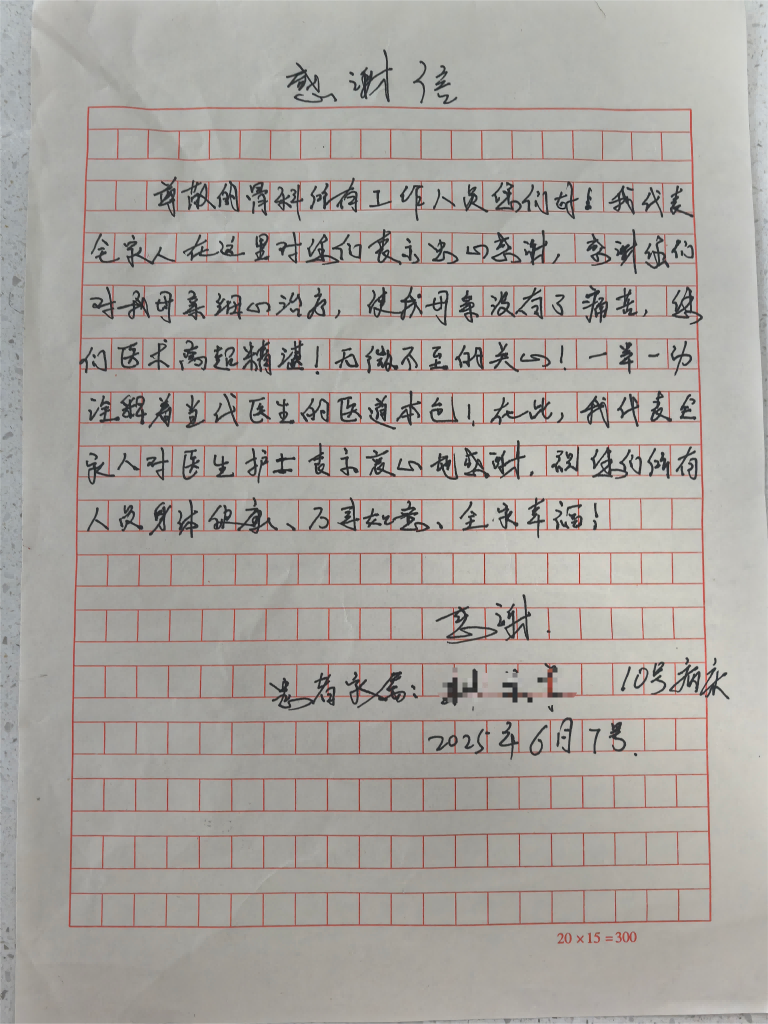 感谢信
尊敬的骨科所有工作人员您们好！我代表
全家人在这里对您们表示忠心感谢，感谢您们
对我母亲细心治疗，使我母亲没有了痛苦，您
们医术高超精湛！无微不至的关心！一举一动
诠释着当代医生的医道本色！在此，我代表全
家人对医生护士表示衷心地感谢，祝您们所有
人员身体健康、万事如意、全家幸福！
感谢.
患者家属： 10号病床
2025年6月7号.
20×15=300